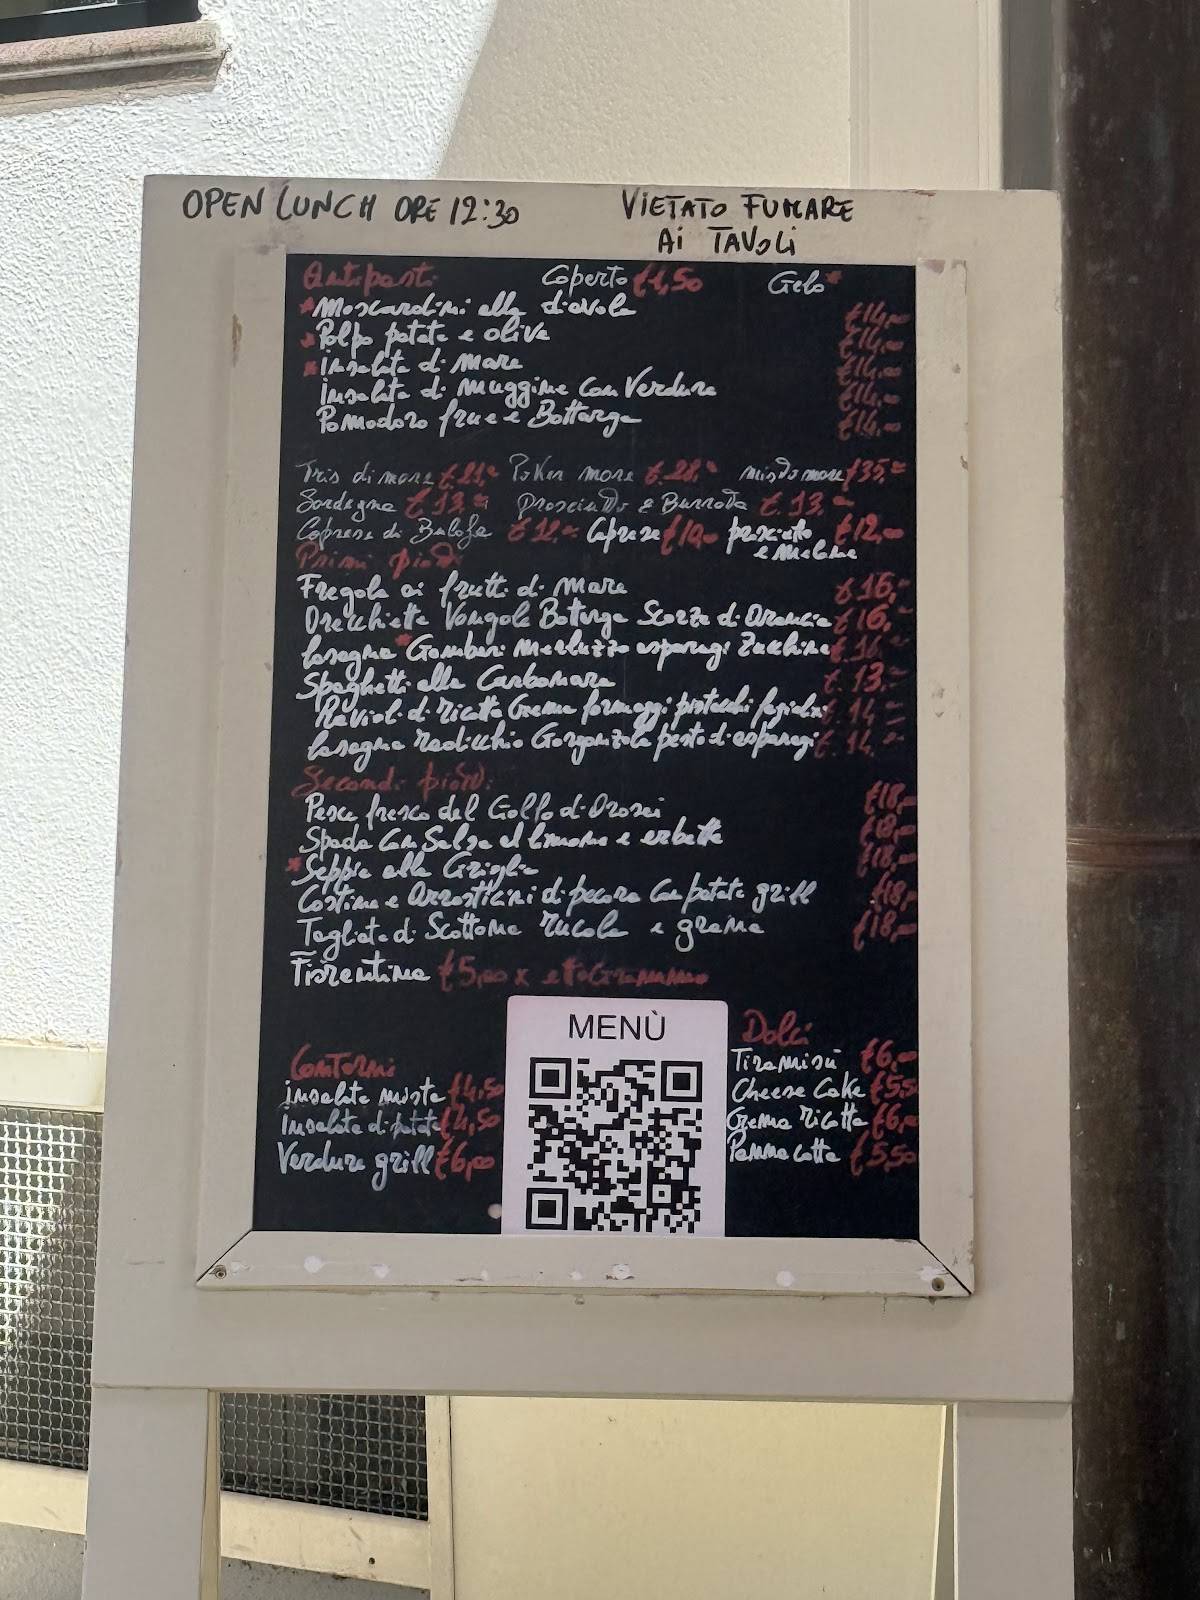 OPEN LUNCH ORE 12:30
VIETATO FUMARE
Ai TAVOLi
Antipasti Coperto €1,50 Gelo*
*Moscardini alla diavola €14,00
*Polpo patate e olive €14,00
*insalata di mare €14,00
insalata di muggine con Verdure €14,00
Pomodoro frue e Bottarga €14,00
Tris di mare €.21,= Poker mare €.28,= misto mare €35,=
Sardegna €.13,= Prosciutto e Burrata €.13,=
Caprese di Bufala €12,= Caprese €10,00 prosciutto e melone €12,00
Primi piatti
Fregola ai frutti di mare €.16,=
Orecchiette Vongole Bottarga Scorza di Arancia €16,=
lasagna *Gamberi Merluzzo asparagi Zucchine €.16,=
Spaghetti alla Carbonara €.13,=
Ravioli di ricotta Crema formaggi pistacchi fagiolini €.14,=
lasagna radicchio Gorgonzola pesto di asparagi €.14,=
Secondi piatti
Pesce fresco del Golfo di Orosei €18,00
Spada con Salsa al limone e erbette €18,00
*Seppie alla Griglia €18,00
Costine e Arrosticini di pecora con patate grill €18,00
Tagliata di Scottona rucola e grana €18,00
Fiorentina €5,00 x ettoGrammo
MENÙ
Contorni
insalata mista €4,50
insalata di patate €4,50
Verdure grill €6,00
Dolci
Tiramisù €6,00
Cheese Cake €5,50
Crema ricotta €6,00
Panna cotta €5,50